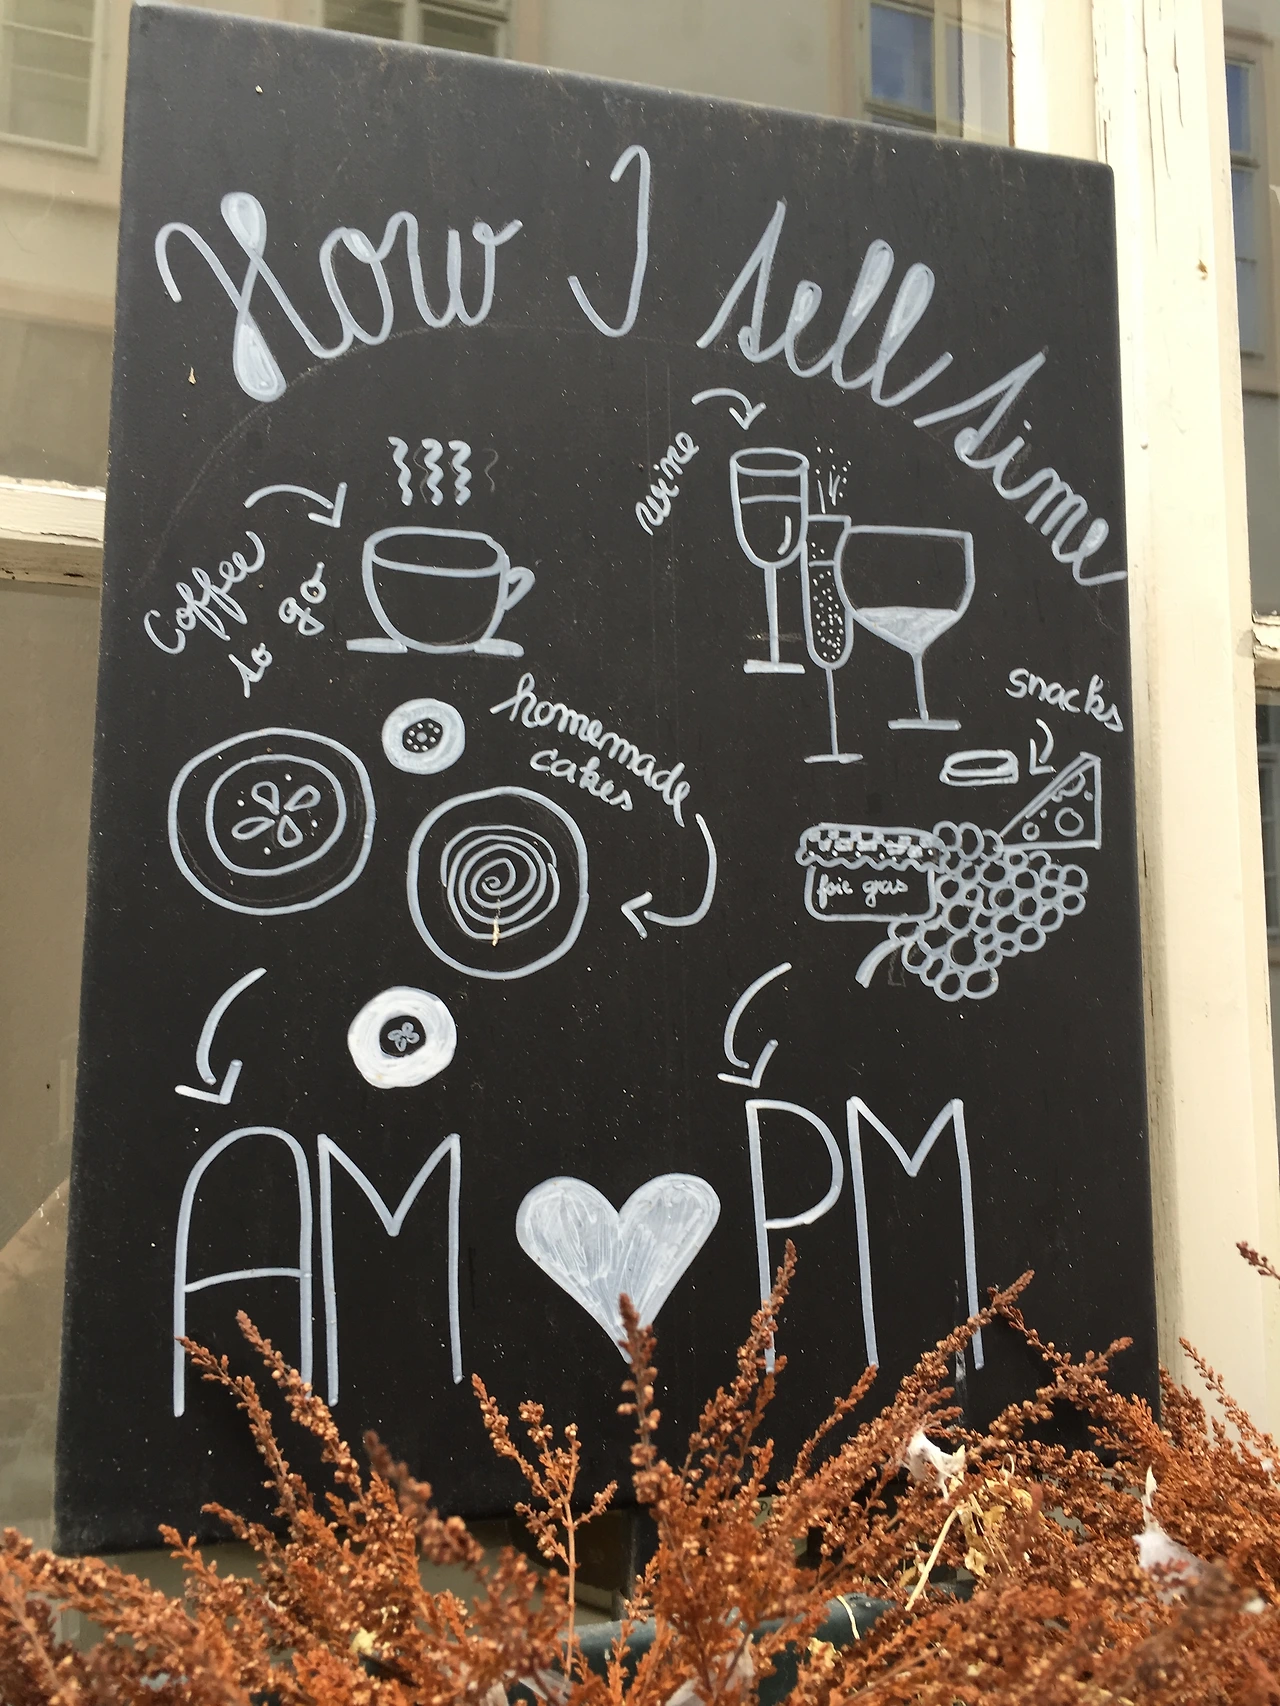 How I tell time
wine
Coffee
to go
homemade
cakes
snacks
foie gras
AM PM